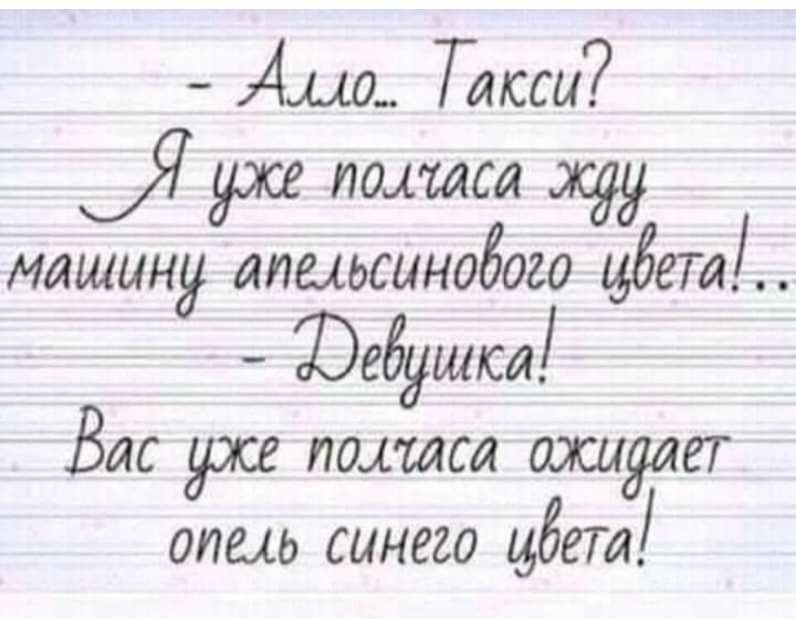 - Алло... Такси?
Я уже полчаса жду
машину апельсинового цвета!..
- Девушка!
Вас уже полчаса ожидает
опель синего цвета!